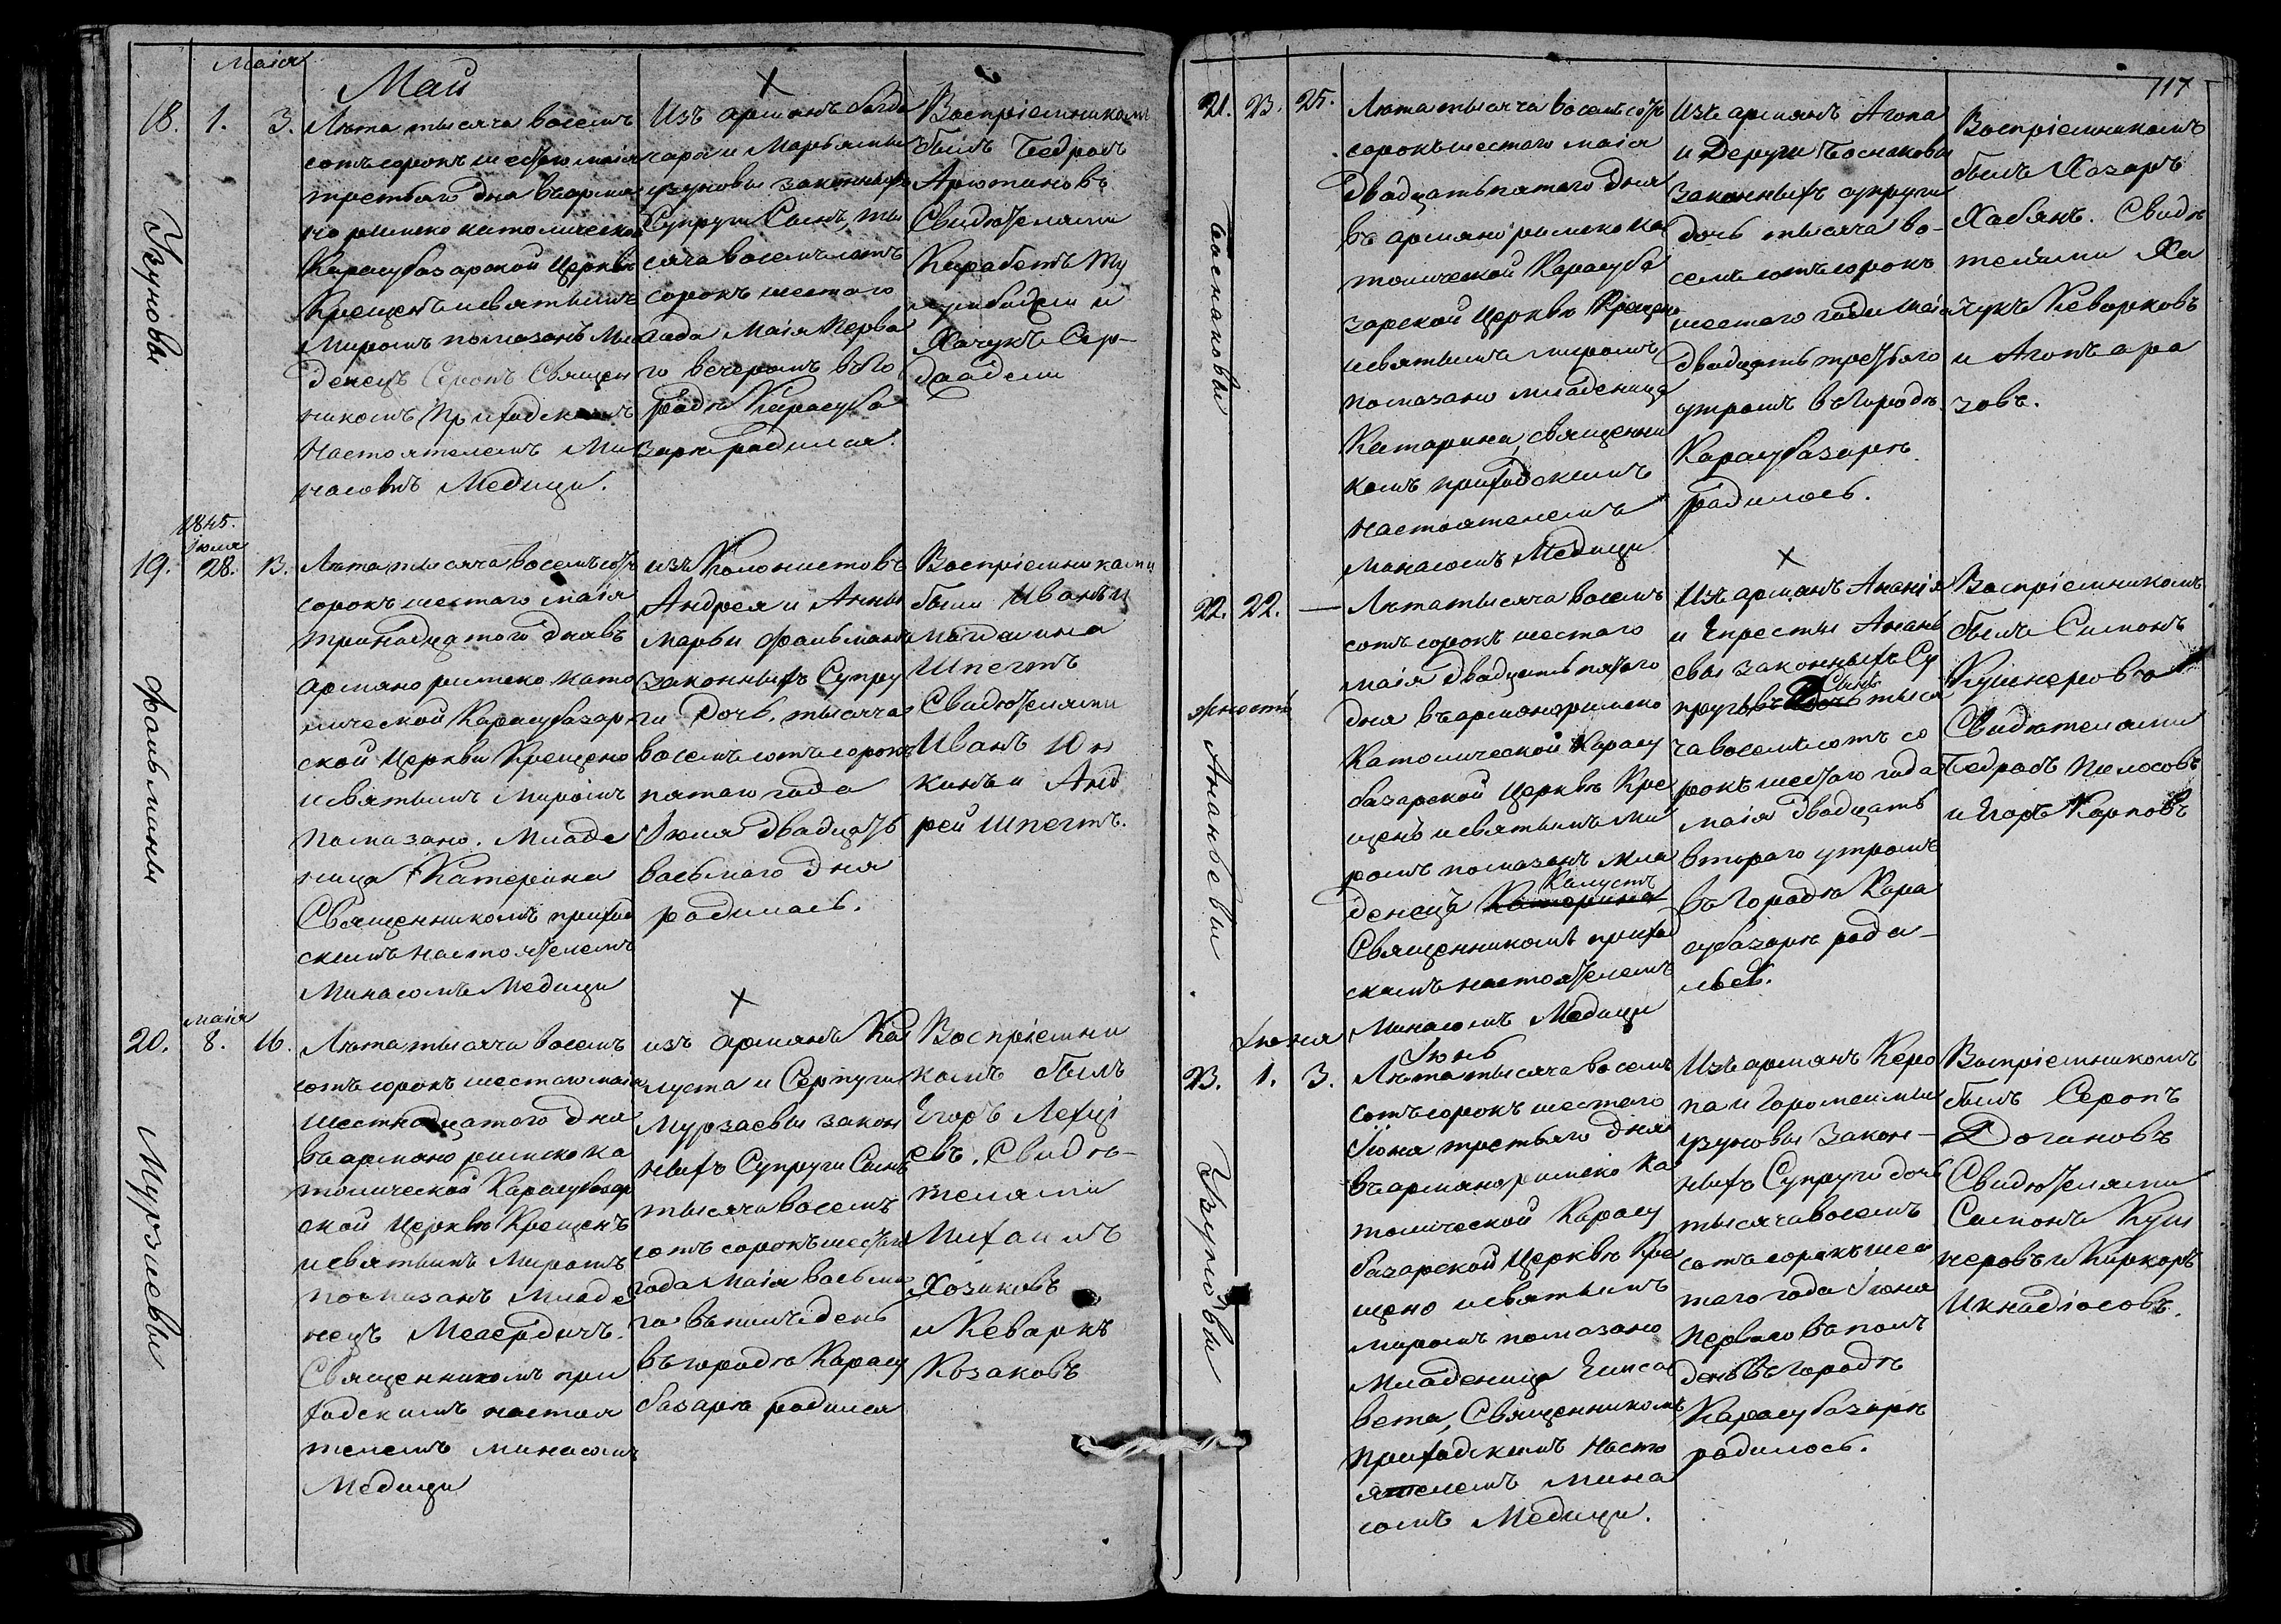 Маія
Май
18. 1. 3.
Узуновы
Лѣта тысяча восемь
сотъ сорокъ шестаго маія
третьяго дня въ армя
но римско католической
Карасубазарской Церквѣ
Крещенъ и святымъ
Миромъ помазанъ Мла
денецъ Серопъ Священ
никомъ Приходскимъ
Настоятелемъ Ми
насомъ Медици.
Изъ армянъ
и Марьямы
Узуновы законныхъ
Супруги Сынъ, ты
сяча восемьсотъ
сорокъ шестаго
года Маія Перва
го вечеромъ въ Го
родѣ Карасуба
зарѣ родился.
Воспріемникомъ
былъ Бедросъ
Арютиновъ
Свидѣтелями
Карабетъ
и
Хачукъ Сер-
1845.
Іюля
19. 28. 13.
Фольманы
Лѣта тысяча восемьсотъ
сорокъ шестаго маія
тринадцатого дня въ
армяно римско като
лической Карасубазар
ской Церкви Крещено
и святымъ Миромъ
помазано. Младе
ница Катерина
Священникомъ приход
скимъ настоятелемъ
Минасомъ Медици
изъ Колонистовъ
Андрея и Анны
Марьи Фольманы
законныхъ Супру
ги Дочь, тысяча
восемь сотъ сорокъ
пятаго года
Іюля двадцать
восьмаго дня
родилась.
Воспріемниками
были Иванъ и
Магдалина
Шпегтъ
Свидѣтелями
Иванъ Юн
кинъ и Анд
рей Шпегтъ.
маія
20. 8. 16.
Мурзаевы
Лѣта тысяча восемь
сотъ сорокъ шестаго маія
шестнадцатого дня
въ армяно римско ка
толической Карасубазар
ской Церквѣ Крещенъ
и святымъ Миромъ
помазанъ Младе
нецъ Мегердичъ.
Священникомъ при
ходскимъ настоя
телемъ минасомъ
Медици
изъ армянъ Кал
уста и Серпуги
Мурзаевы закон
ныхъ Супруги Сынъ
тысяча восемь
сотъ сорокъ шестаго
года Маія восьма
го въ полъ день
въ городѣ Карасу
базарѣ родился
Воспріемни
комъ былъ
Егоръ Лехці
евъ. Свидѣ-
телями
Михаилъ
Хозиковъ
и Кеваркъ
Козаковъ
117
21. 23. 25.
Боснаковы
Лѣта тысяча восемьсотъ
сорокъ шестаго маія
двадцать пятаго дня
въ армяно римско ка
толической Карасуба
зарской Церквѣ Крещено
и святымъ миромъ
помазано младеница
Катарина, священни
комъ приходскимъ
настоятелемъ
Минасомъ Медици
Изъ армянъ Агопа
и Деруги Боснаковы
законныхъ супруги
дочь тысяча во-
семь сотъ сорокъ
шестаго года маія
двадцать третьяго
утромъ въ Городѣ
Карасубазарѣ
родилось.
Воспріемникомъ
былъ Хазаръ
Хабянъ. Свидѣ
телями Ха
чукъ Кеворковъ
и Агопъ ара
зовъ.
22. 22. —
Ананьевы
Лѣта тысяча восемь
сотъ сорокъ шестаго
маія двадцать пятаго
дня въ армяно римско
Католической Карасу
базарской Церквѣ Кре
щенъ и святымъ ми
ромъ помазанъ мла
Калустъ
денецъ Катерина
Священникомъ приход
скимъ настоятелемъ
Минасомъ Медици
Изъ армянъ Ананія
и Епрестии Анань
евы законныхъ Су
Сынъ
пруговъ Дочь тыся
ча восемьсотъ со
рокъ шестаго года
маія двадцать
втораго утромъ
въ Городѣ Кара
субазарѣ роди-
лься.
Воспріемникомъ
былъ Симонъ
Кушнеровъ
Свидѣтелями
Бедросъ Пилосовъ
и Егоръ Карповъ
Іюня
Іюнь
23. 1. 3.
Узуновы
Лѣта тысяча восемь
сотъ сорокъ шестаго
Іюня третьяго дня
въ армяно римско ка
толической Карасу
базарской Церквѣ Кре
щено и святымъ
миромъ помазано
Младеница Елиса
вета, Священникомъ
Приходскимъ Насто
ятелемъ Мина
сомъ Медици.
Изъ армянъ Керо
па и Горомсимы
Узуновы Закон-
ныхъ Супруги дочь
тысяча восемь
сотъ сорокъ шес
таго года Іюня
перваго въ полъ
день въ городѣ
Карасубазарѣ
родилось.
Воспріемникомъ
былъ Серопъ
Догановъ
Свидѣтелями
Симонъ Куш
неровъ и Киркоръ
Икнадіосовъ.